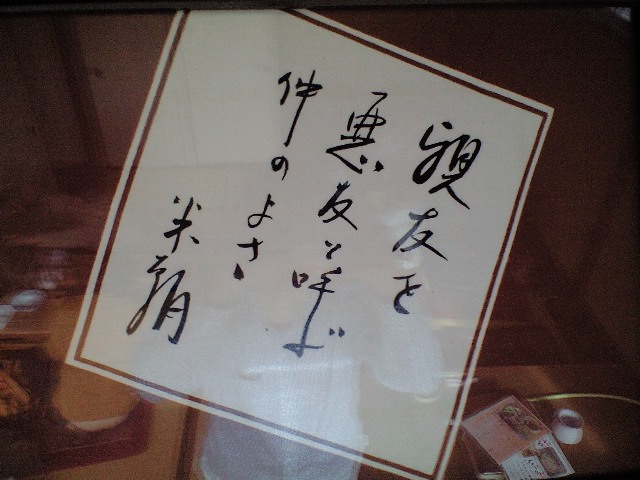 親友を
悪友と呼ぶ
仲のよさ
米朝